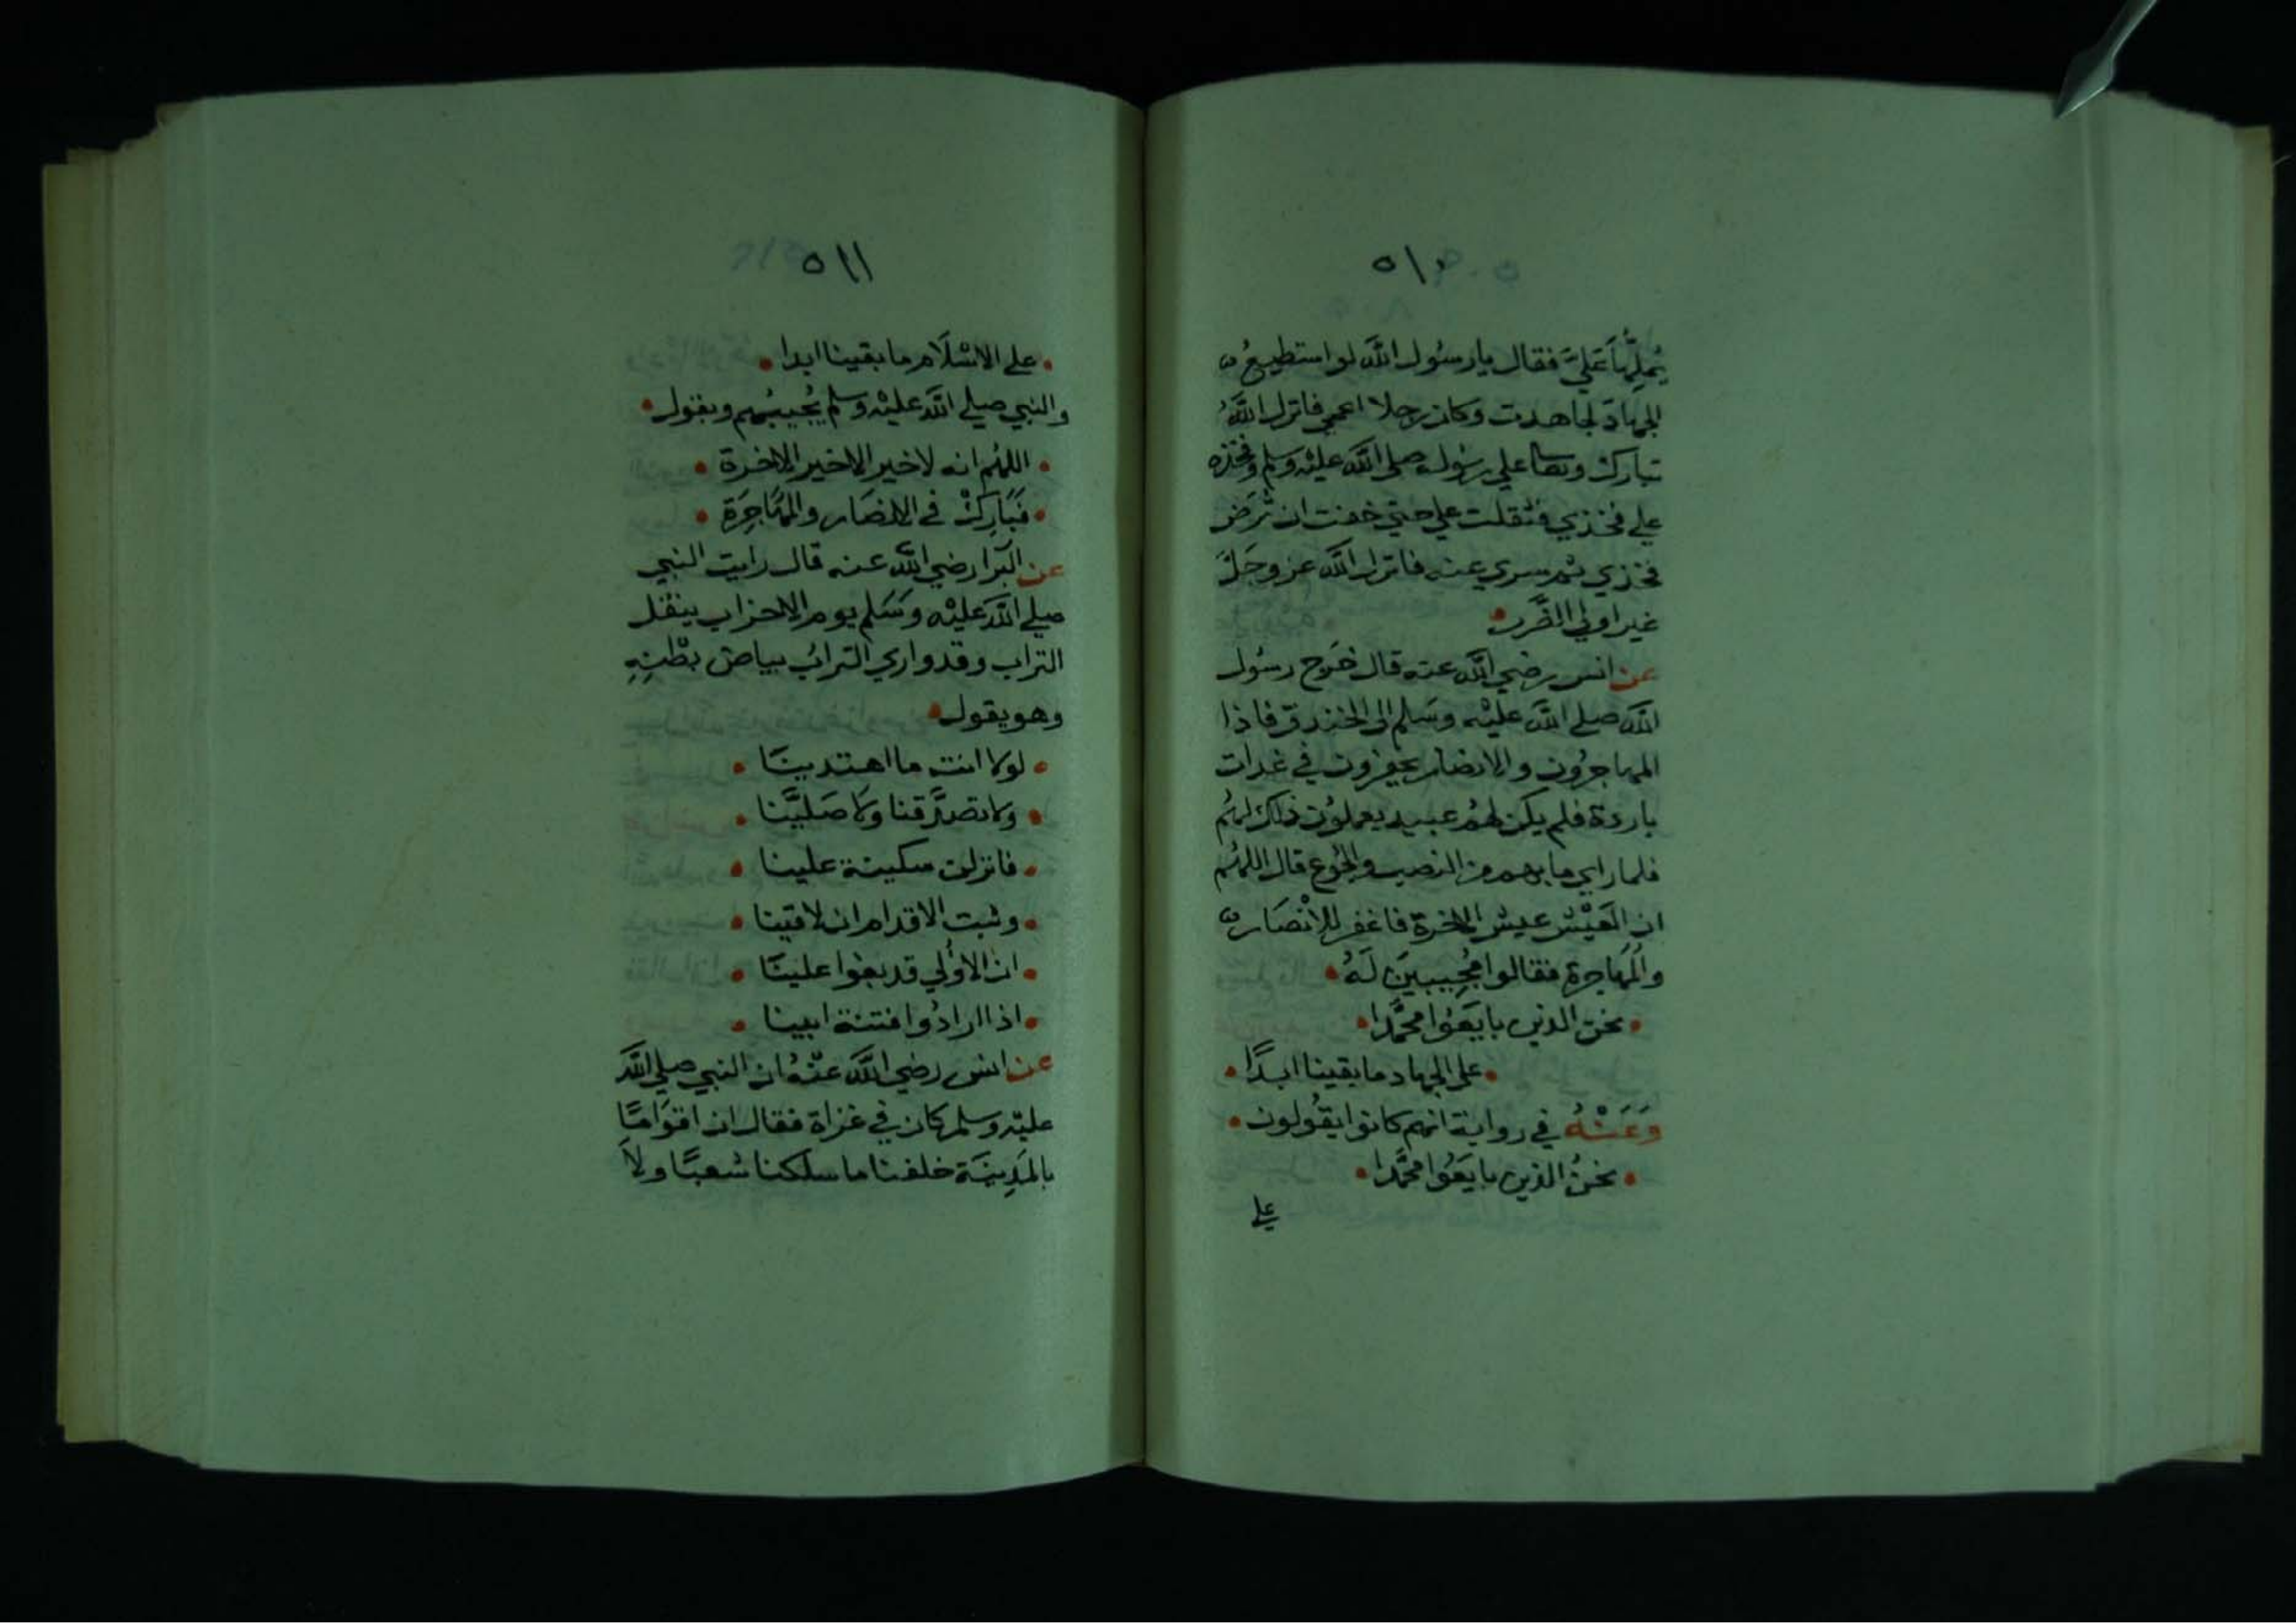 ٥١٠
يُمِلُّهَا عَلَيَّ فقال يا رسُول الله لو استطيعُ
الجهادَ لجاهدت وكان رجلا اعمي فانزل اللهُ
تبارك وتعا علي رسُوله صلي الله عليه وسلم وفخذه
علي فخذي فثقلت علي حتي خفت ان تُرَض
فخذي ثم سري عنه فانزل الله عز وجَلَّ
غير اولي الضَّرر
عن انس رضي الله عنه قال خَرج رسُول
الله صلي الله عليْه وسَلم الي الخندق فاذا
المهاجرُون والانصار يحفرون في غدات
باردة فلم يكن لهُم عبيد يعملوُن ذلك لهُم
فلما راي ما بهم من النصب والجُوع قال اللهُم
ان العَيْش عيش الاخرة فاغفر للانْصَار
والمُهَاجرة فقالوا مُجِيبينَ لَهُ
نحن الذين بايَعُوا محمَّدا
علي الجهاد ما بقينا ابدًا
وَعَنْهُ في رواية انهم كانوا يقُولون
نحنُ الذين بايَعُوا محمَّدا
علي
٥١١
علي الاسْلَام ما بقينا ابدا
والنبي صلي الله عليْه وسلم يُجيبُهم ويقول
اللهُم انه لا خير الا خير الاخرة
فَبَارِكْ في الانصَار والمُهَاجِرَةِ
عن البَرا رضي الله عنه قال رايت النبي
صلي الله عليْه وسَلم يوم الاحزاب ينقل
التراب وقد واري الترابُ بياض بطْنِهِ
وهو يقول
لولا انت ما اهتدينَا
ولا تصدَّقنا ولا صَليَّنا
فانزلن سكينة علينا
وثبت الاقدام ان لاقينا
ان الاوُلي قد بغوا علينَا
اذا ارادُوا فتنة ابينا
عن انس رضي الله عنْهُ ان النبي صلي الله
عليْه وسلم كان في غزاة فقال ان اقوَامًا
بالمَدِينَة خلفنا ما سلكنا شعبًا ولاَ